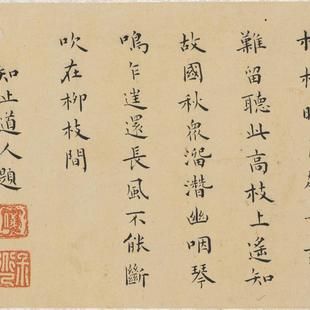 難留聽此高枝上遥知
故國秋衆溜潛幽咽琴
鳴乍逢還長風不能斷
吹在柳枝間
知止道人題